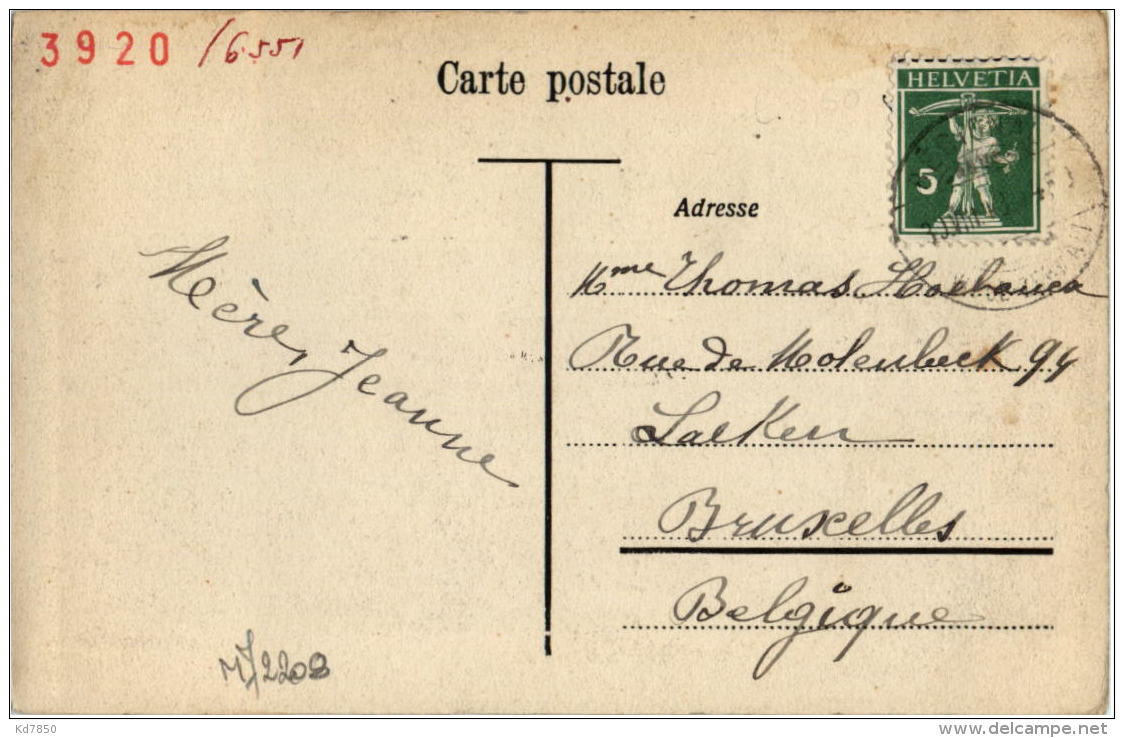 3920 /6551
Carte postale
HELVETIA
5
Adresse
Mme Thomas
Rue de Molenbeek 94
Laeken
Bruxelles
Belgique
Mère, Jeanne
M/2208
Kd7850
www.delcampe.net